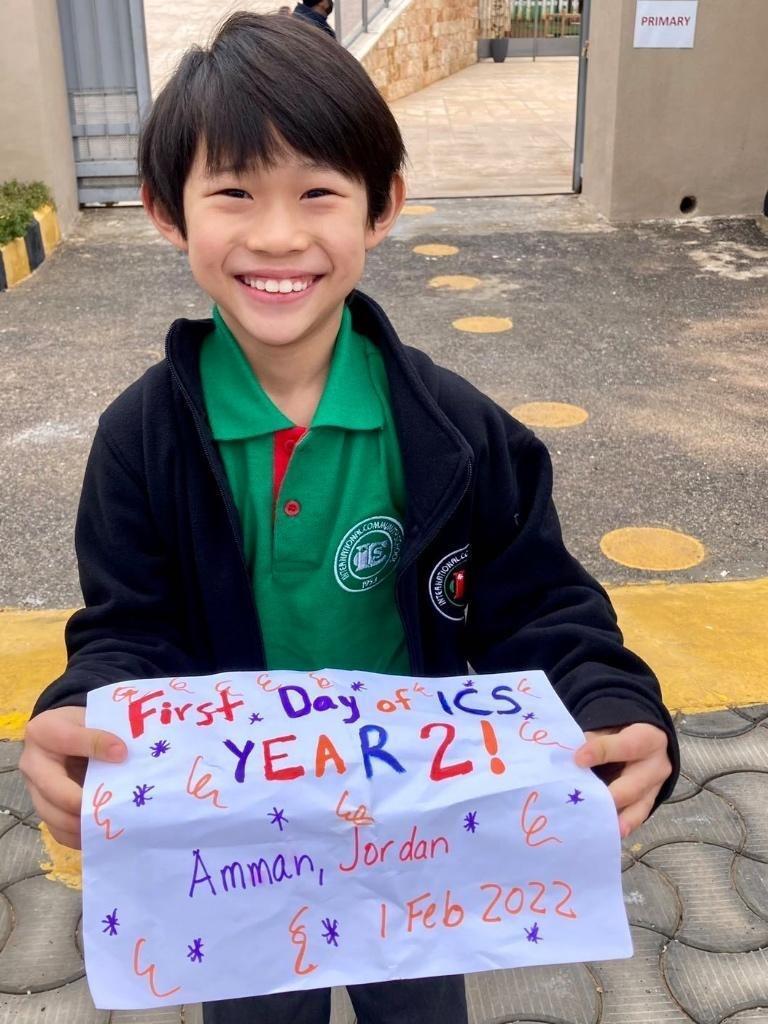 PRIMARY
INTERNATIONAL COMMUNITY SCHOOL
ICS
1953
INTERNATIONAL CO
First Day of ICS
YEAR 2!
Amman, Jordan
1 Feb 2022